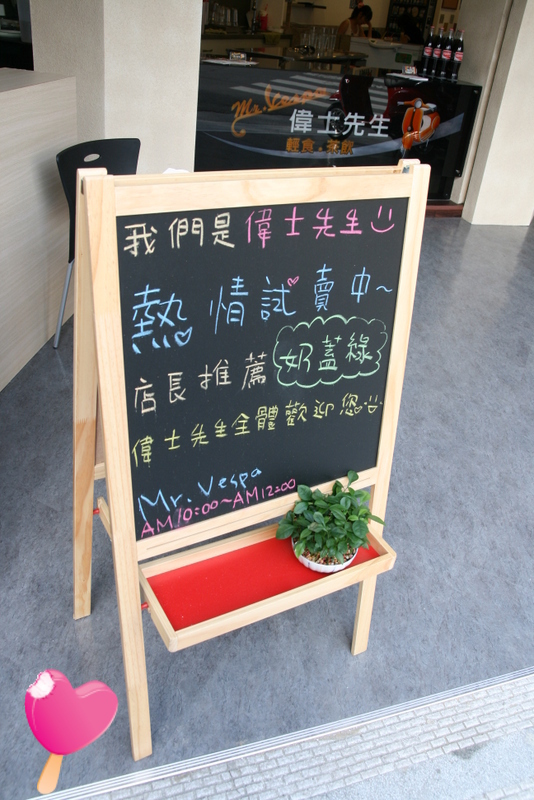 Mr. Vespa
偉士先生
輕食.茶飲
我們是偉士先生
熱情試賣中~
店長推薦 奶蓋綠
偉士先生全體歡迎您
Mr. Vespa
AM10:00~AM12:00